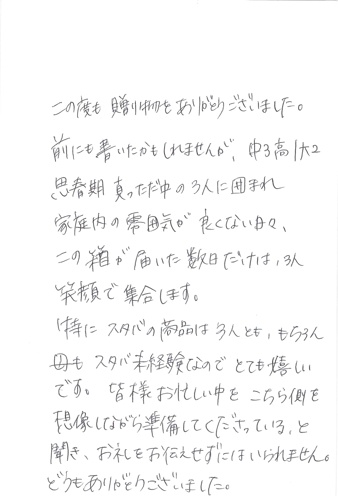 この度も贈り物をありがとうございました。
前にも書いたかもしれませんが、中3高1大2
思春期真っただ中の3人に囲まれ
家庭内の雰囲気が良くない日々、
この箱が届いた数日だけは、3人
笑顔で集合します。
特にスタバの商品は3人とも、もちろん
母もスタバ未経験なのでとても嬉しい
です。皆様お忙しい中をこちら側を
想像しながら準備してくださっている、と
聞き、お礼をお伝えせずにはいられません。
どうもありがとうございました。